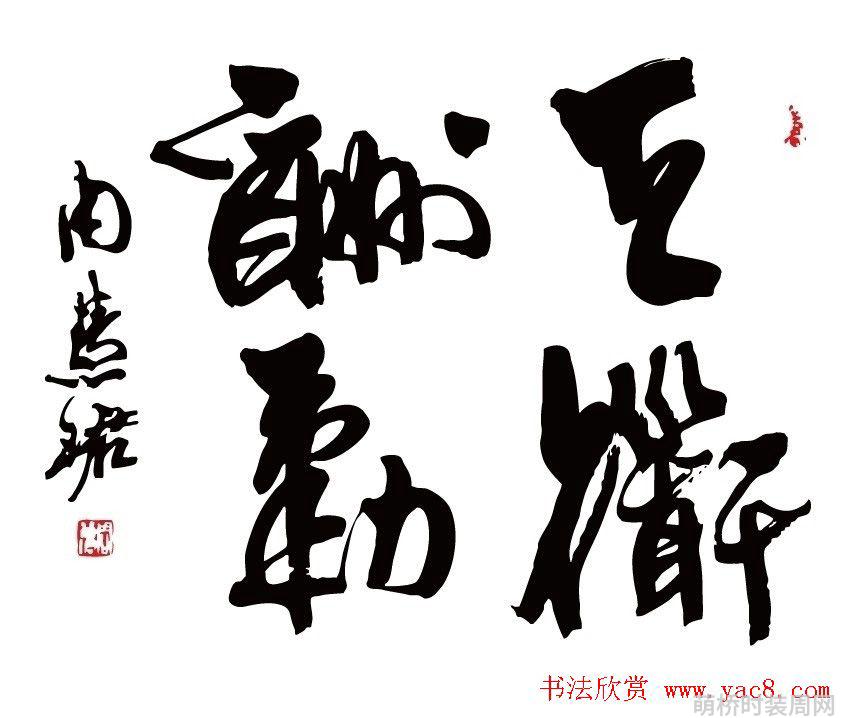 天道
酬勤
周慧珺
书法欣赏 www.yac8.com
萌桥时装周网